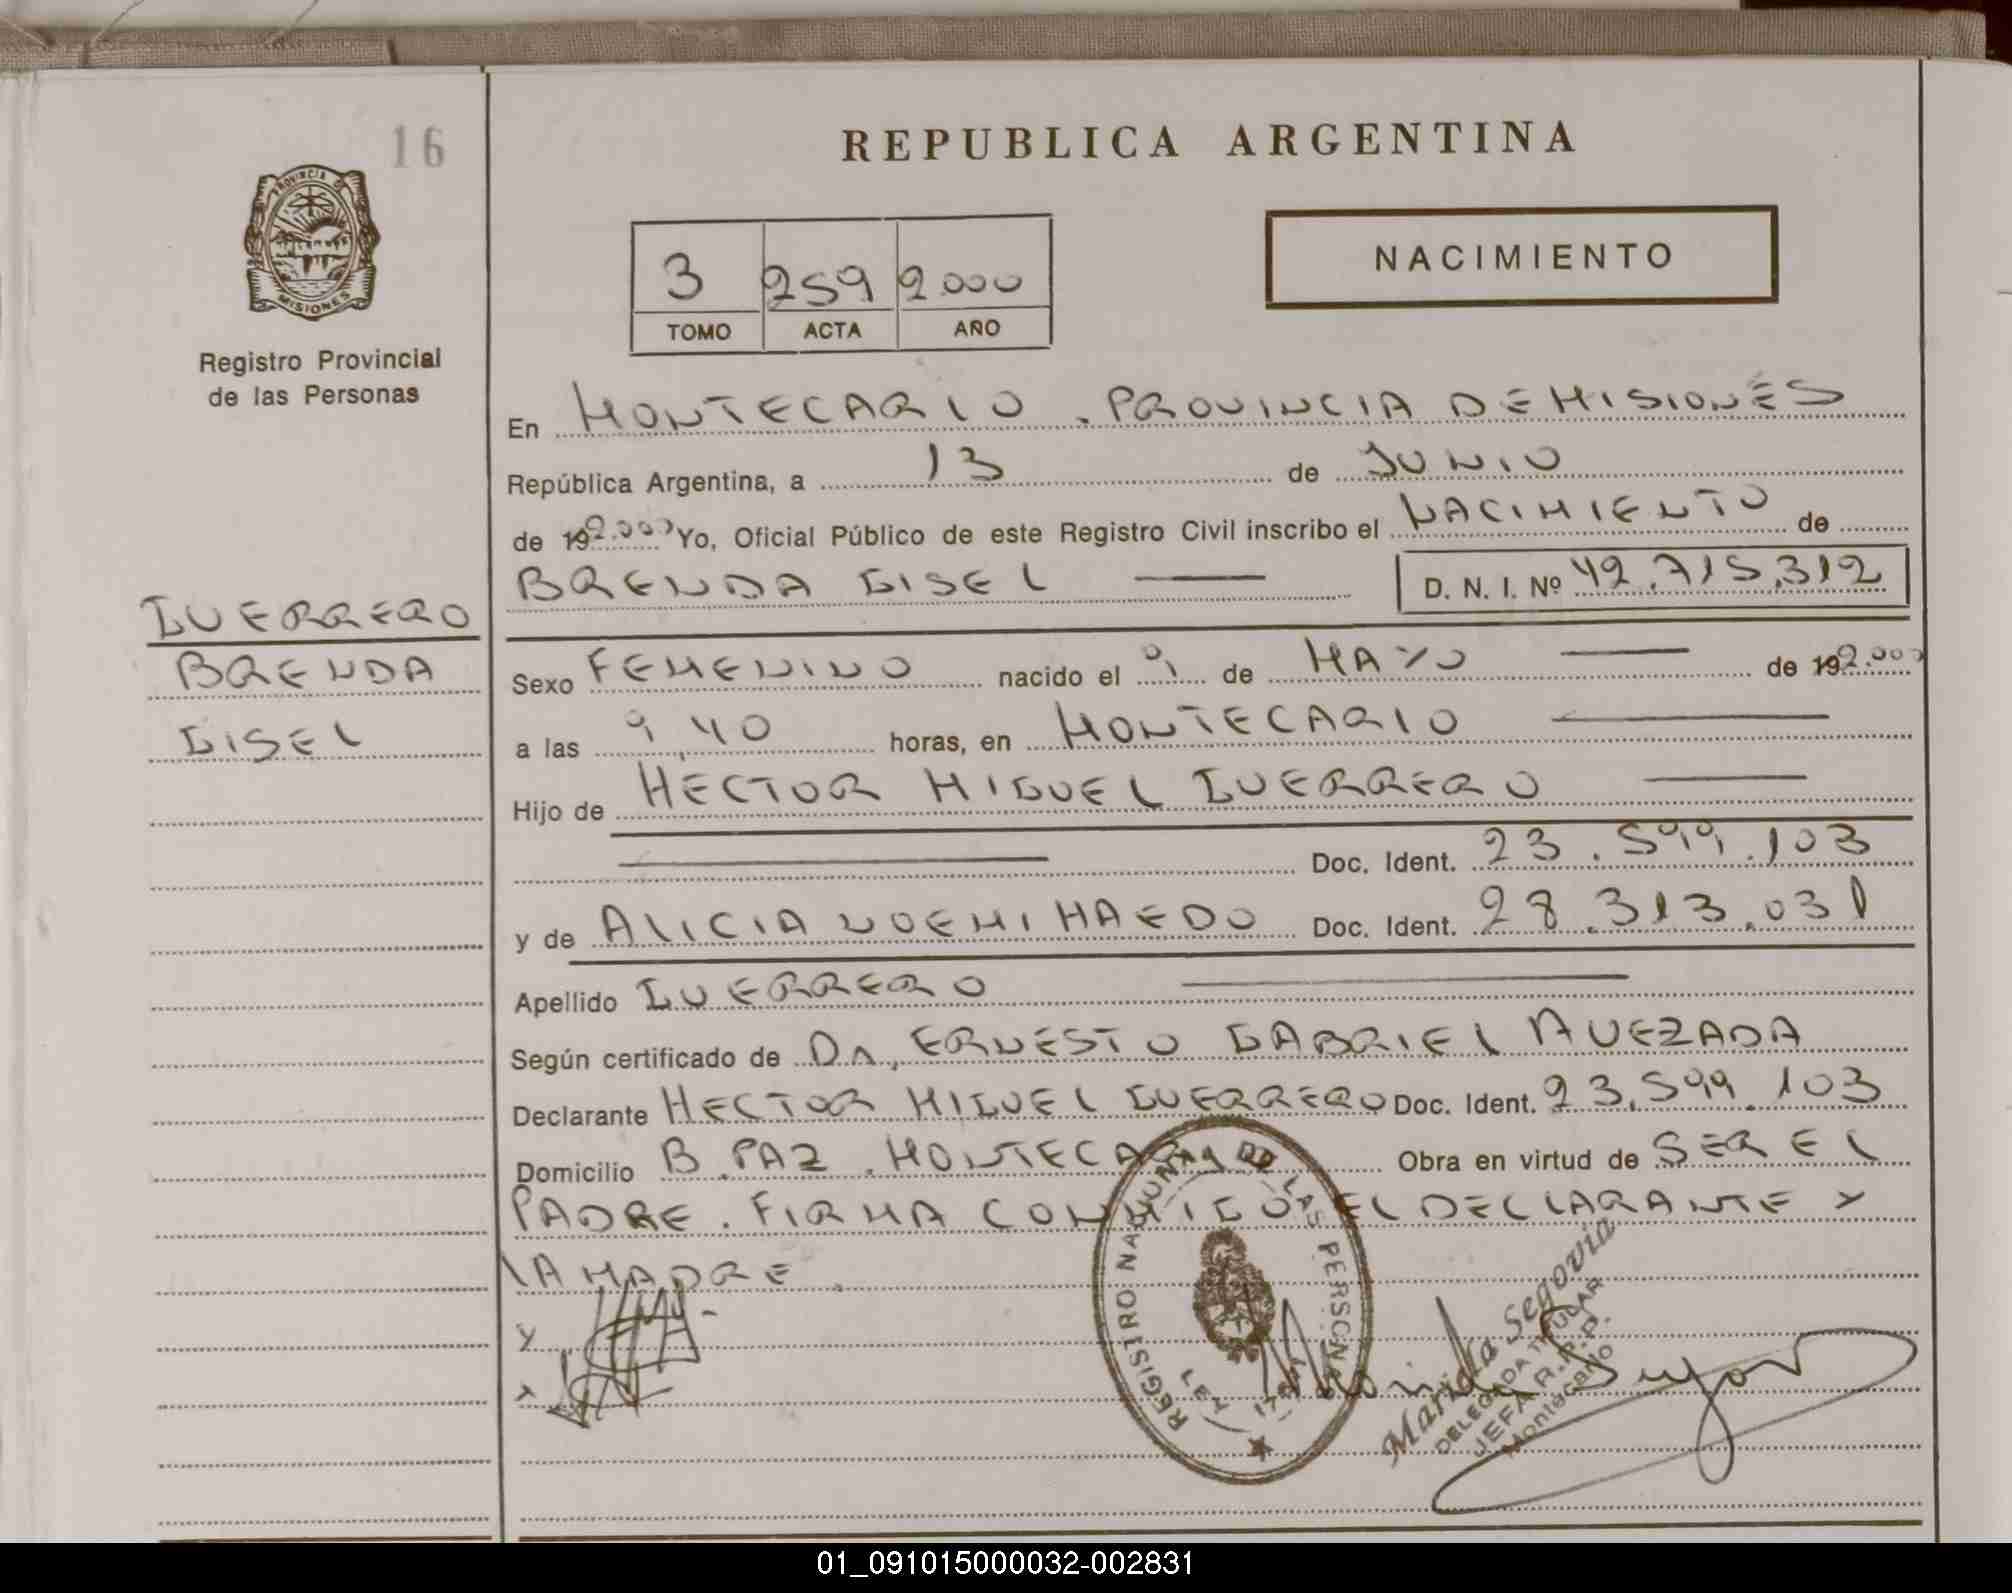 16
REPUBLICA ARGENTINA
PROVINCIA DE
MISIONES
Registro Provincial
de las Personas
3 259 2.000
TOMO ACTA AÑO
NACIMIENTO
En MONTECARLO . PROVINCIA DE MISIONES
República Argentina, a 13 de JUNIO
de 192.000 Yo, Oficial Público de este Registro Civil inscribo el NACIMIENTO de
BRENDA GISEL D. N. I. Nº 42.715.312
GUERRERO
BRENDA
GISEL
Sexo FEMENINO nacido el 9 de MAYO de 192.000
a las 9,40 horas, en MONTECARLO
Hijo de HECTOR MIGUEL GUERRERO
Doc. Ident. 23.599.103
y de ALICIA NOEMI HAEDO Doc. Ident. 28.313.031
Apellido GUERRERO
Según certificado de Dr, ERNESTO GABRIEL AUEZADA
Declarante HECTOR MIGUEL GUERRERO Doc. Ident. 23.599.103
Domicilio B. PAZ . MONTECARLO Obra en virtud de SER EL
PADRE . FIRMA CONMIGO EL DECLARANTE Y
LA MADRE .
REGISTRO NACIONAL DE LAS PERSONAS
LEY
Marida Segovia
DELEGADA TITULAR
JEFA R.P.P.
Montecarlo
01_091015000032-002831